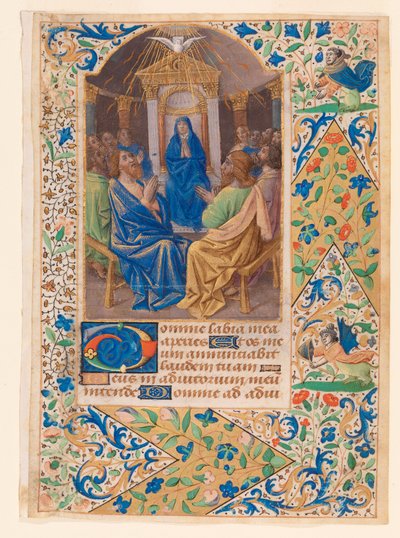 Domine labia mea
aperies Et os me
um annunciabit
laudem tuam
Deus in adiutorium meū
intende Domine ad adiu